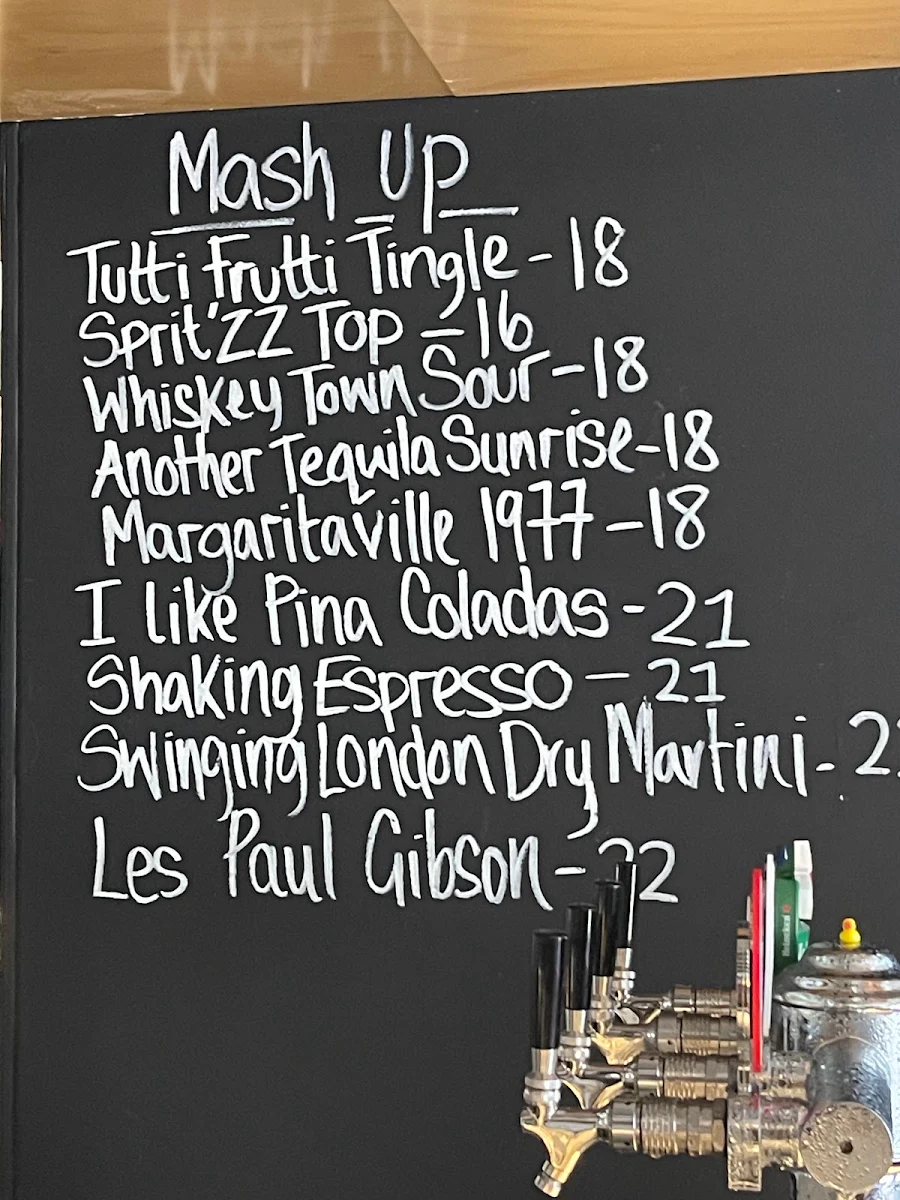 Mash Up
Tutti Frutti Tingle - 18
Sprit'ZZ Top - 16
Whiskey Town Sour - 18
Another Tequila Sunrise - 18
Margaritaville 1977 - 18
I like Pina Coladas - 21
Shaking Espresso - 21
Swinging London Dry Martini -
Les Paul Gibson - 22
Heineken